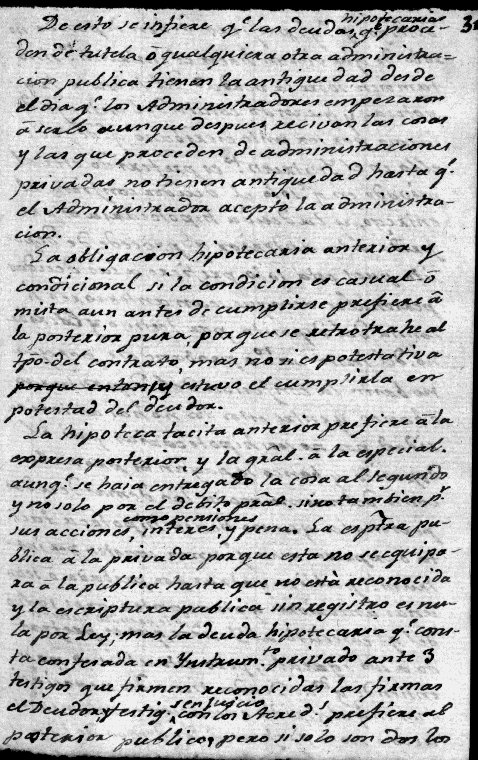 De esto se infiere q.e las deudas hipotecarias q.e proce-
den de tutela ô qualquiera otra administra=
cion publica tienen la antiguedad desde
el dia q.e los Administradores empezaron
â serlo aunque despues recivan las cosas
y las que proceden de administraciones
privadas no tienen antiguedad hasta q.e
el Administrador aceptò la administra-
cion.
La obligacion hipotecaria anterior y
condicional si la condicion es casual ô
mista aun antes de cumplirse prefiere â
la posterior pura, porque se retrotrahe al
tpõ del contrato, mas no si es potestativa
porque entonces estuvo el cumplirla en
potestad del deudor.
La hipoteca tacita anterior prefiere â la
expresa posterior, y la gral. â la especial.
aunq.e se haia entregado la cosa al segundo
y no solo por el debito pral. sino tambien p.r
sus acciones, como pensiones, interes, y pena. La esptra pu-
blica â la privada porque esta no se equipa-
ra â la publica hasta que no està reconocida
y la escriptura publica sin registro es nu-
la por Ley; mas la deuda hipotecaria q.e cons-
ta confesada en Ynstrum.to privado ante 3
testigos que firmen reconocidas las firmas
el Deudor y testig.s en juicio con los Acred.s prefiere al
posterior publico, pero si solo son dos los